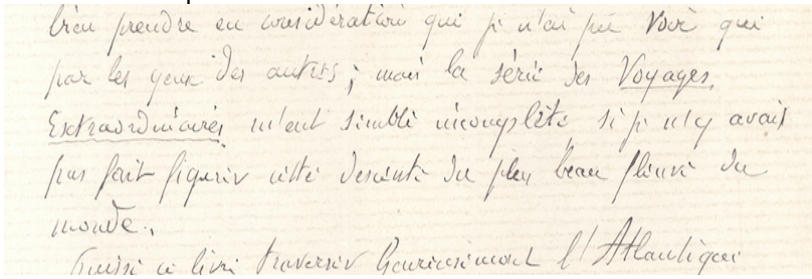 bien prendre en considération que je n'ai pu voir que
par les yeux des autres ; mais la série des Voyages
Extraordinaires m'eut semblé incomplète si je n'y avais
pas fait figurer cette descente du plus beau fleuve du
monde.
Puisse ce livre traverser heureusement l'Atlantique